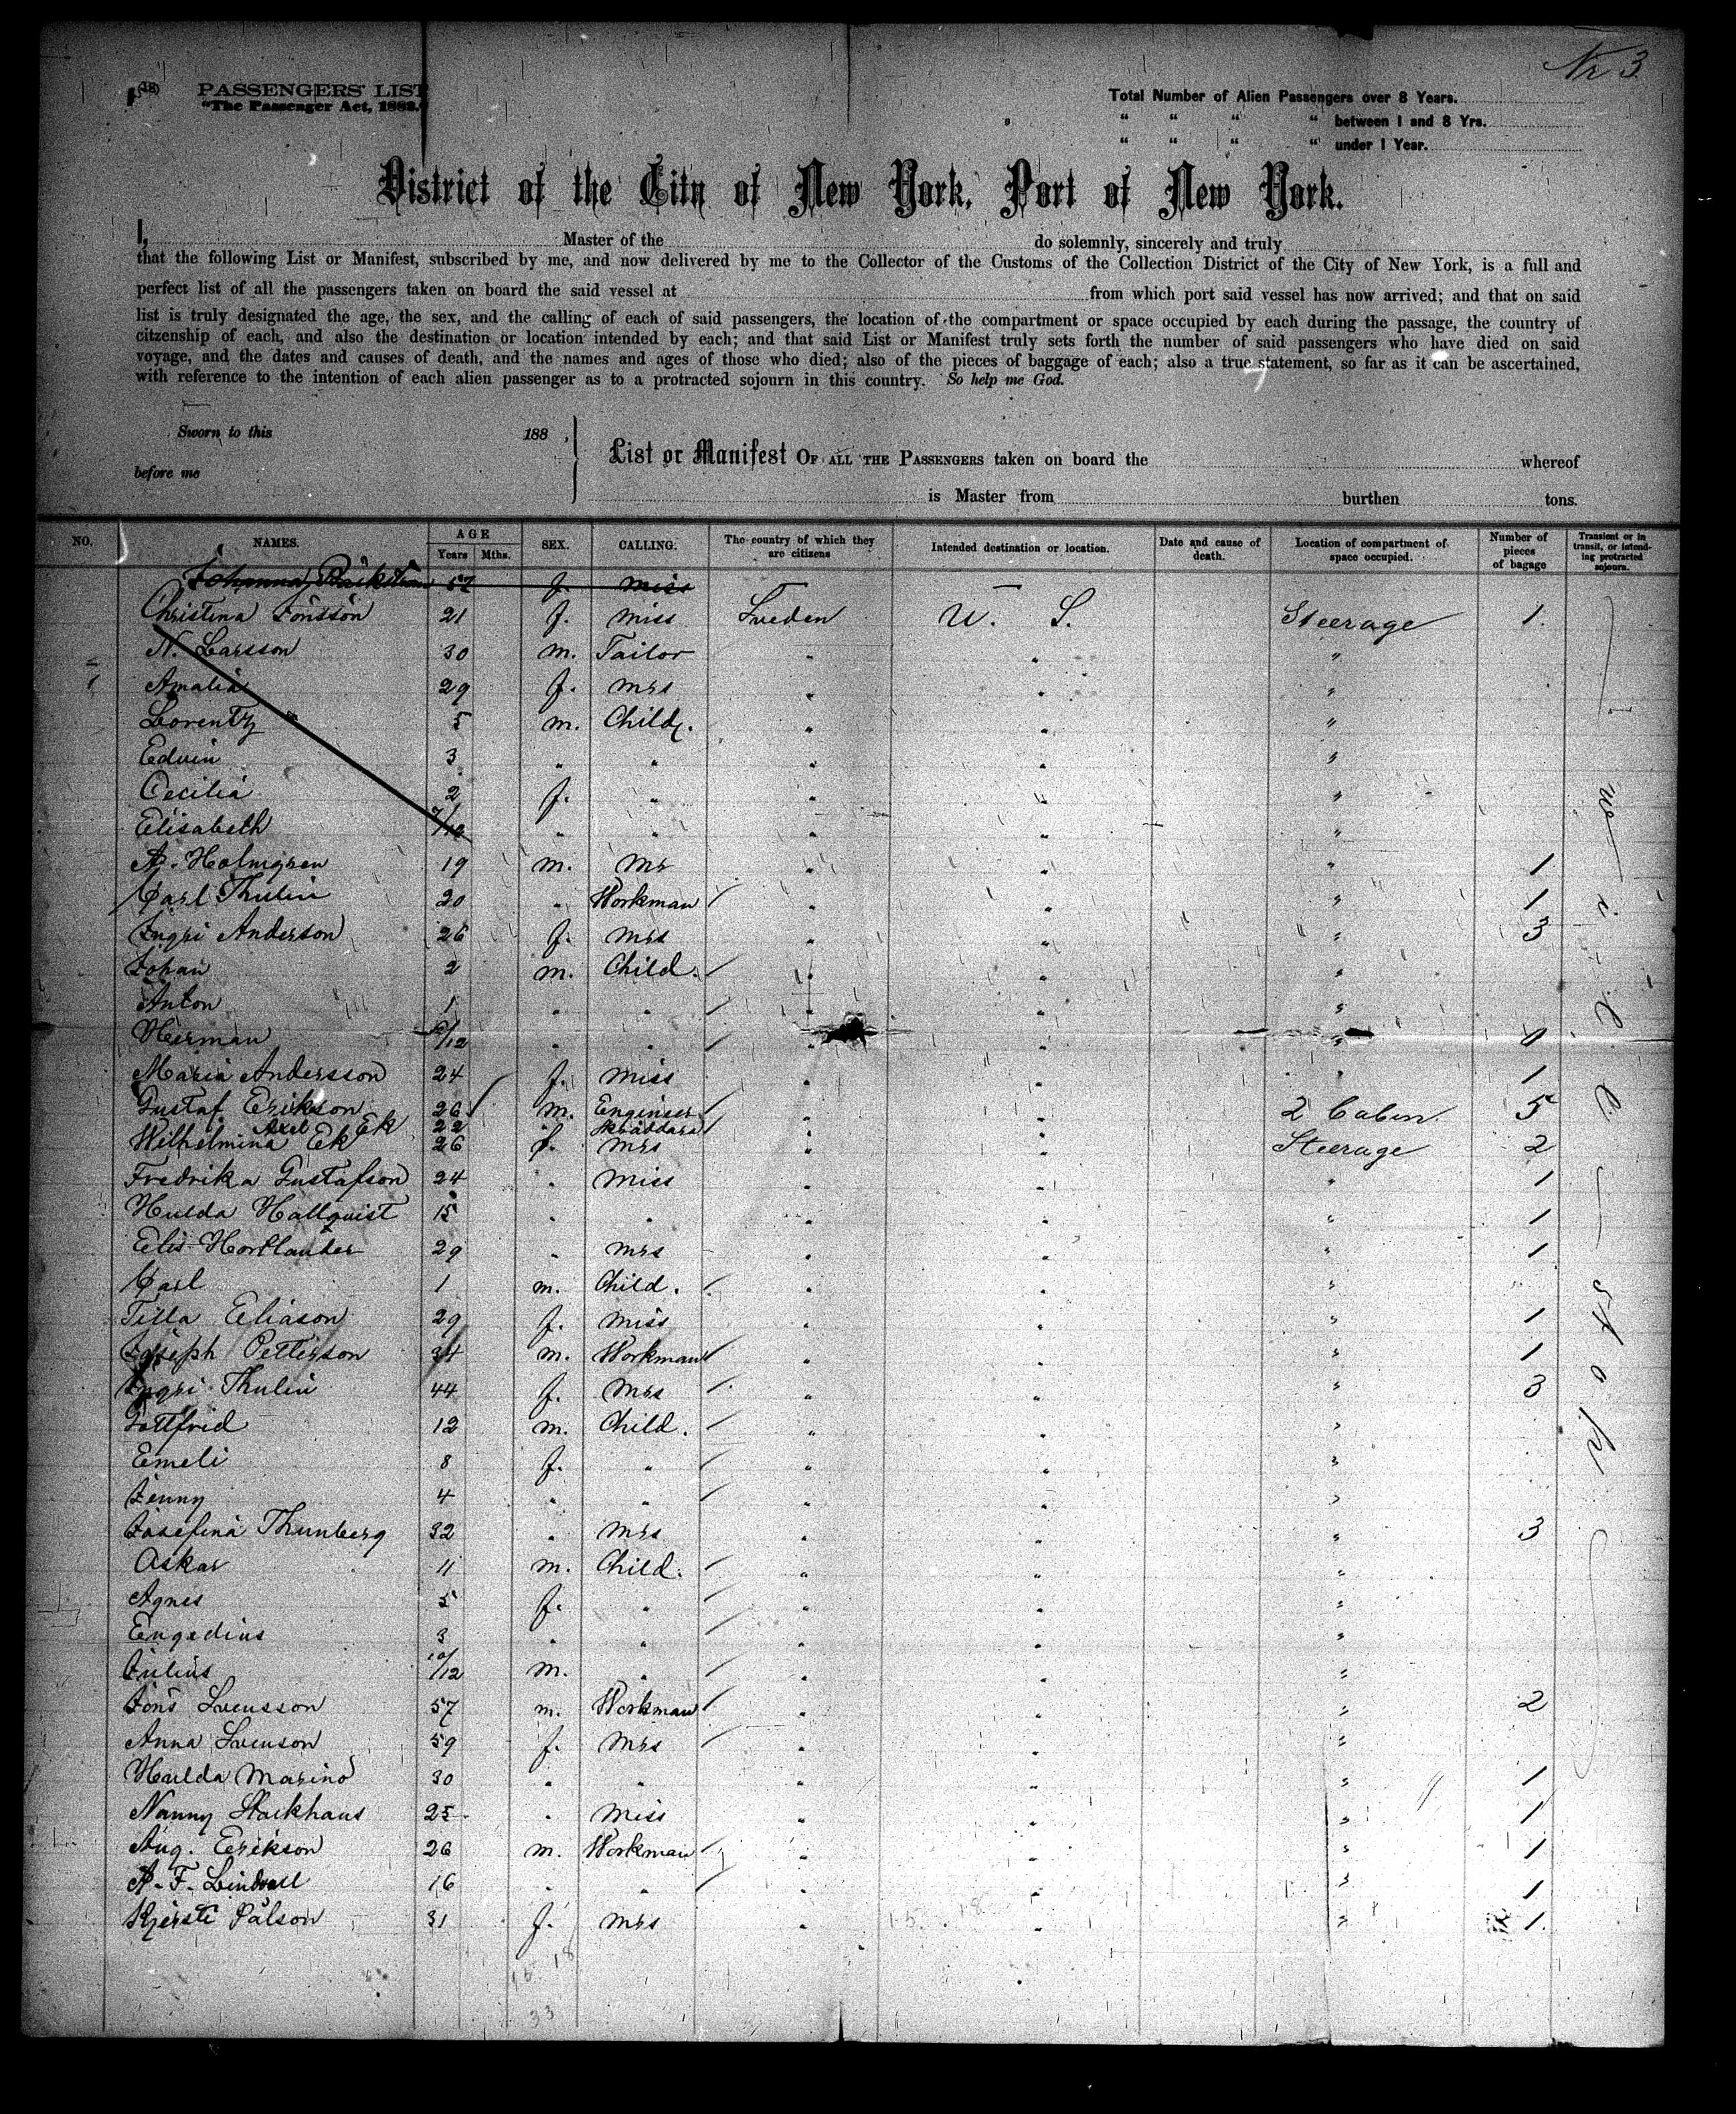 Nr 3
(18) PASSENGERS' LIST
"The Passenger Act, 1882."
Total Number of Alien Passengers over 8 Years.
" " " " between 1 and 8 Yrs.
" " " " under 1 Year.
District of the City of New York, Port of New York.
I, Master of the do solemnly, sincerely and truly
that the following List or Manifest, subscribed by me, and now delivered by me to the Collector of the Customs of the Collection District of the City of New York, is a full and
perfect list of all the passengers taken on board the said vessel at from which port said vessel has now arrived; and that on said
list is truly designated the age, the sex, and the calling of each of said passengers, the location of the compartment or space occupied by each during the passage, the country of
citzenship of each, and also the destination or location intended by each; and that said List or Manifest truly sets forth the number of said passengers who have died on said
voyage, and the dates and causes of death, and the names and ages of those who died; also of the pieces of baggage of each; also a true statement, so far as it can be ascertained,
with reference to the intention of each alien passenger as to a protracted sojourn in this country. So help me God.
Sworn to this 188 ,
before me
List or Manifest OF ALL THE PASSENGERS taken on board the whereof
is Master from burthen tons.
NO. NAMES. AGE Years Mths. SEX. CALLING. The country of which they are citizens Intended destination or location. Date and cause of death. Location of compartment of space occupied. Number of pieces of bagage Transient or in transit, or intending protracted sojourn.
Johanna 57 f. miss
Christina Jönsson 21 f. miss Sveden U. S. Steerage 1.
N. Larsson 30 m. Tailor " " "
Amalia 29 f. mrs " " "
Lorentz 5 m. Child. " " "
Edvin 3 " " " " "
Cecilia 2 f. " " " "
Elisabeth /12 " " " " "
A. Holmgren 19 m. Mr " " " 1
Carl Thulin 20 " Workman " " " 1
Ingri Anderson 26 f. mrs " " " 3
Johan 2 m. Child. " " "
Anton 1 " " " " "
Herman /12 " " " " "
Maria Andersson 24 f. miss " " " 1
Gustaf Erikson 26 m. Engineer " " 2 Cabin. 5
Axel Ek 22 " Skräddare
Wilhelmina Ek 26 f. mrs " " Steerage 2
Fredrika Gustafson 24 " Miss " " " 1
Hulda Hallquist 15 " " " " " 1
Elis 29 " mrs " " " 1
Carl 1 m. Child. " " "
Tilla Eliason 29 f. miss " " " 1
Joseph Petterson 34 m. Workman " " " 1
Ingri Thulin 44 f. Mrs " " " 3
Gottfried 12 m. Child. " " "
Emeli 8 f. " " " "
Jenny 4 " " " " "
Josefina Thunberg 32 " mrs " " " 3
Oskar 11 m. Child. " " "
Agnes 5 f. " " " "
Engedius 3 " " " " "
Julius 10/12 m. " " " "
Jöns Svensson 57 m. Workman " " " 2
Anna Svenson 59 f. Mrs " " "
Hulda Marino 30 " " " " " 1
Nanny Stackhaus 25 " Miss " " " 1
Aug. Erikson 26 m. Workman " " " 1
A. F. Lindvall 16 " " " " " 1
Kjersti Pålson 31 f. mrs " " " 1.
33